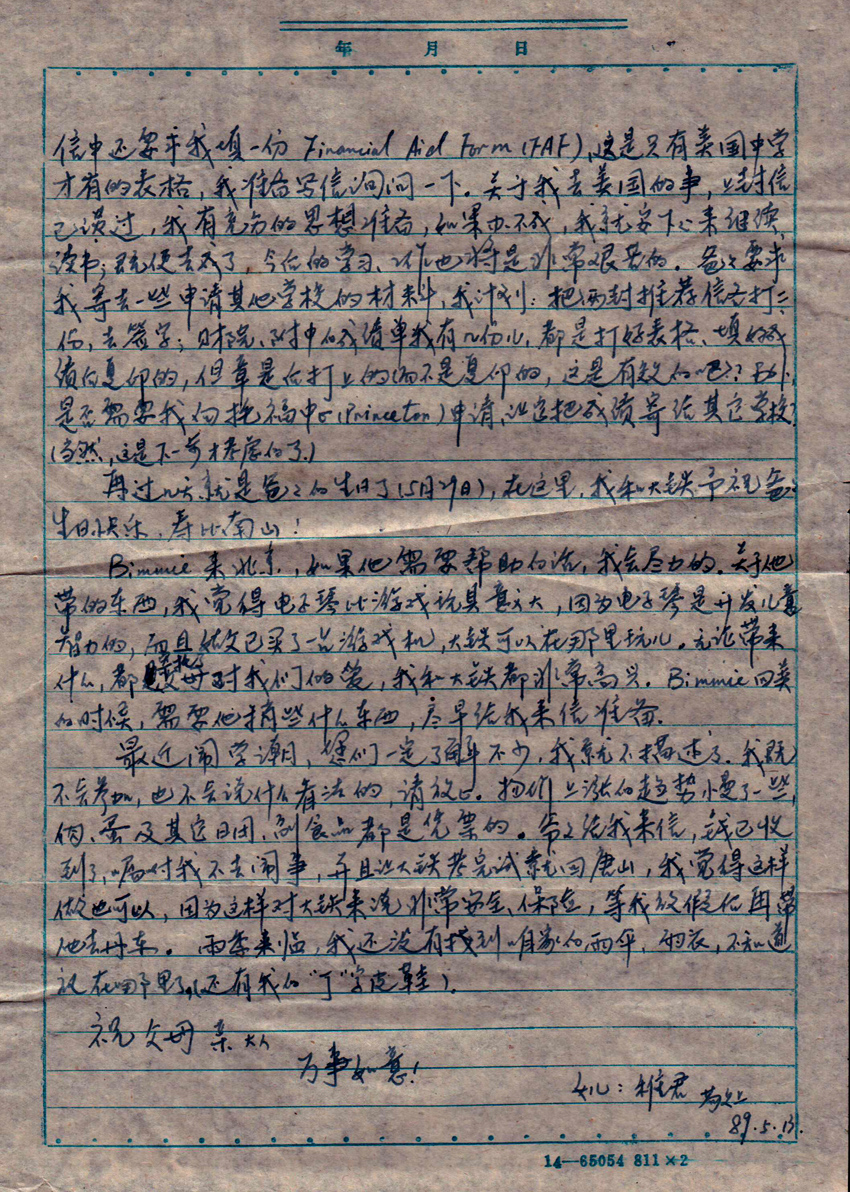 年 月 日
信中还要求我填一份 Financial Aid Form (FAF),这是只有美国中学
才有的表格,我准备写信询问一下。关于我去美国的事,上封信
已谈过,我有充分的思想准备,如果办不成,我就安下心来继续
读书;既便去成了,今后的学习、工作也将是非常艰苦的。爸爸要求
我寄去一些申请其他学校的材料,我计划:把两封推荐信各打三
份,去签字;财院、附中的成绩单我有几份儿,都是打好表格、填好成
绩后复印的,但章是后打上的而不是复印的,这是有效的吧?
是否需要我向托福中心(Princeton)申请,让它把成绩寄给其它学校?
(当然,这是下一步才考虑的了。)
再过几天就是爸爸的生日了(5月29日),在这里,我和大铁予祝爸爸
生日快乐、寿比南山!
Bimmie来北京,如果他需要帮助的话,我会尽力的。关于他
带的东西,我觉得电子琴比游戏玩具意义大,因为电子琴是开发儿童
智力的,而且 已买了一台游戏机,大铁可以在那里玩儿。无论带来
什么,都是父母对我们的爱,我和大铁都非常高兴。Bimmie回美
的时候,需要他捎些什么东西,尽早给我来信准备。
最近闹学潮,您们一定了解不少,我就不描述了。我既
不会参加,也不会说什么看法的,请放心。物价上涨的趋势小慢了一些,
肉、蛋及其它日用、副食品都是凭票的。爷爷给我来信,钱已收
到了,嘱咐我不去闹事,并且让大铁考完试就回唐山,我觉得这样
做也可以,因为这样对大铁来说非常安全、保险,等我放假后再带
他去丹东。雨季来临,我还没有找到咱家的雨伞、雨衣,不知道
放在哪里了(还有我的“丁”字皮鞋)。
祝父母亲大人
万事如意!
女儿:雅君 敬上
89.5.13.
14—65054 811×2